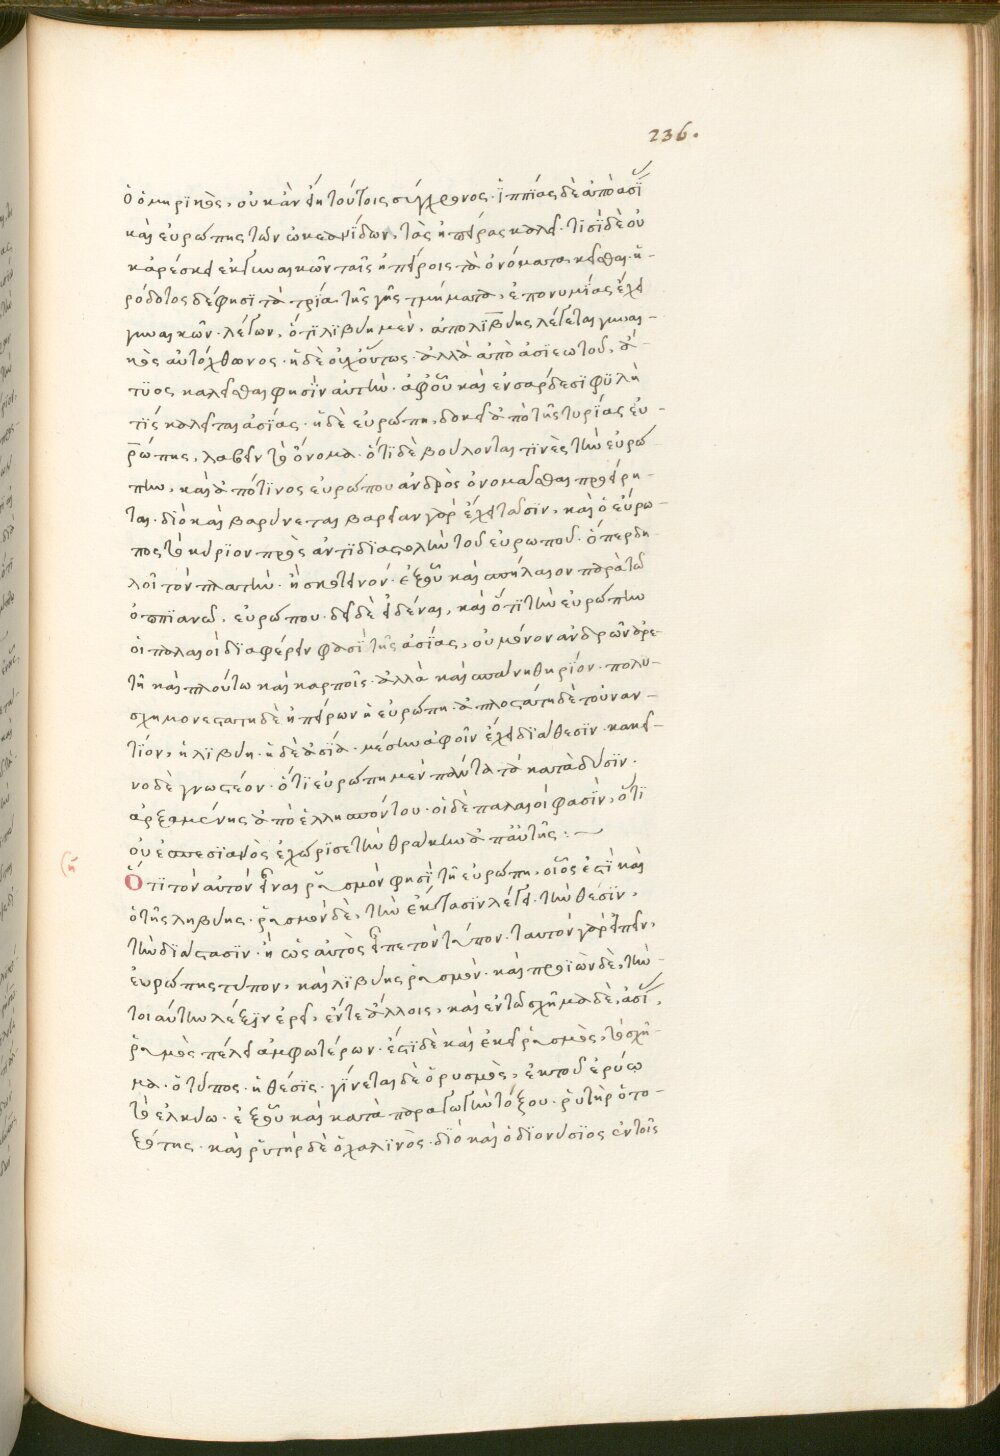 236.
ὁ ὁμηρικὸς, οὐκ ἂν εἴη τούτοις σύγχρονος· ἱππίας δὲ ἀπὸ ἀσί
καὶ εὐρώπης τῶν ὠκεανίδων, τὰς ἠπείρας καλεῖ· τισὶ δὲ οὐ
κ ἀρέσκει ἐκ γυναικῶν ταῖς ἠπείροις τὰ ὀνόματα κεῖσθαι· ἡ-
ρόδοτος δέ φησι τὰ τρία τῆς γῆς τμήματα, ἐπονυμίας ἔχει
γυναικῶν· λέγων, ὅτι λιβύη μὲν, ἀπο λιβύης λέγεται γυναι-
κὸς αὐτόχθωνος· ἡ δὲ οὐχ οὕτως· ἀλλὰ ἀπὸ ἀσίεω τοῦ, ἄ-
τυος, καλεῖσθαι φησὶν αὐτὴν· ἀφοῦ καὶ ἐν σάρδεσι φϋλὴ
τίς καλεῖται ἀσίας· ἡ δὲ εὐρώπη, δοκεῖ ἀπὸ τῆς τυρίας εὐ-
ρώπης, λαβεῖν τὸ ὄνομα· ὅτι δὲ βούλονται τινὲς τὴν εὐρώ-
πην, καὶ ἀπό τινος εὐρώπου ἀνδρὸς ὀνομᾶσθαι προείρη-
ται· διὸ καὶ βαρύνεται βαρεῖαν γὰρ ἔχει τάσιν, καὶ ὁ εὔρω-
πος τὸ κύριον πρὸς ἀντιδιαστολὴν τοῦ εὐρωποῦ· ὅπερ δη-
λοῖ τὸν πλατὺν· ἢ σκοτεινόν· ἐξ οὗ καὶ σπήλαιον παρὰ τῶ
ὀππιανῶ, εὐρώπου· δεῖ δὲ εἰδέναι, καὶ ὅτι τὴν εὐρώπην
οἱ παλαιοὶ διαφέρειν φασὶ τῆς ἀσίας, οὐ μόνον ἀνδρῶν ἀρε-
τῆ καὶ πλούτω καὶ καρποῖς· ἀλλὰ καὶ σπάνη θηρίον· πολυ-
σχημονεστάτη δὲ ἠπείρων ἡ εὐρώπη· ἀπλοστάτη δὲ τοὐναν-
τίον, ἡ λιβύη· ἡ δὲ ἀσία· μέσην ἀφοῖν ἔχει διάθεσιν· κακεῖ-
νο δὲ γνωστέον· ὅτι εὐρώπη μὲν πάντα τὰ κατὰ δύσιν·
ἀρξαμένης ἀπὸ ἑλλησπόντου· οἱ δὲ παλαιοί φασὶν, ὅτι
οὐεσπεσιανὸς ἐχώρισε τὴν θράκην ἀπ αὐτῆς:~
Ὅτι τὸν αὐτὸν εἶναι ῥυσμόν φησὶ τῆ εὐρώπη, οἷός ἐστὶ καὶ
ὁ τῆς ληβύης· ῥυσμὸν δὲ, τὴν ἔκστασιν λέγει· τὴν θέσιν,
τὴν διάστασιν· ἢ ὡς αὐτὸς εἶπε τὸν τύπον· ταυτόν γὰρ εἰπεῖν,
ἐυρώπης τύπον, καὶ λιβύης ῥυσμὸν· καὶ προϊὼν δὲ, τὴν
τοιαύτην λέξιν ἐρεῖ, ἔν τε ἄλλοις, καὶ ἐν τῶ σχῆμα δὲ, ἀσί,
ῥυσμὸς πέλει ἀμφωτέρων· ἐστὶ δὲ καὶ ἐκεῖ ῥυσμὸς, τὸ σχῆ-
μα· ὁ τύπος· ἡ θέσις· γίνεται δὲ ὁ ρυσμὸς, ἐκ τοῦ ἐρύω
τὸ ἑλκύω· ἐξ οὗ καὶ κατὰ παραγωγὴν τόξου· ῥυτὴρ ὁ το-
ξότης· καὶ ῥυτὴρ δὲ ὁ χαλινὸς· διὸ καὶ ὁ διονύσιος ἐν τοῖς